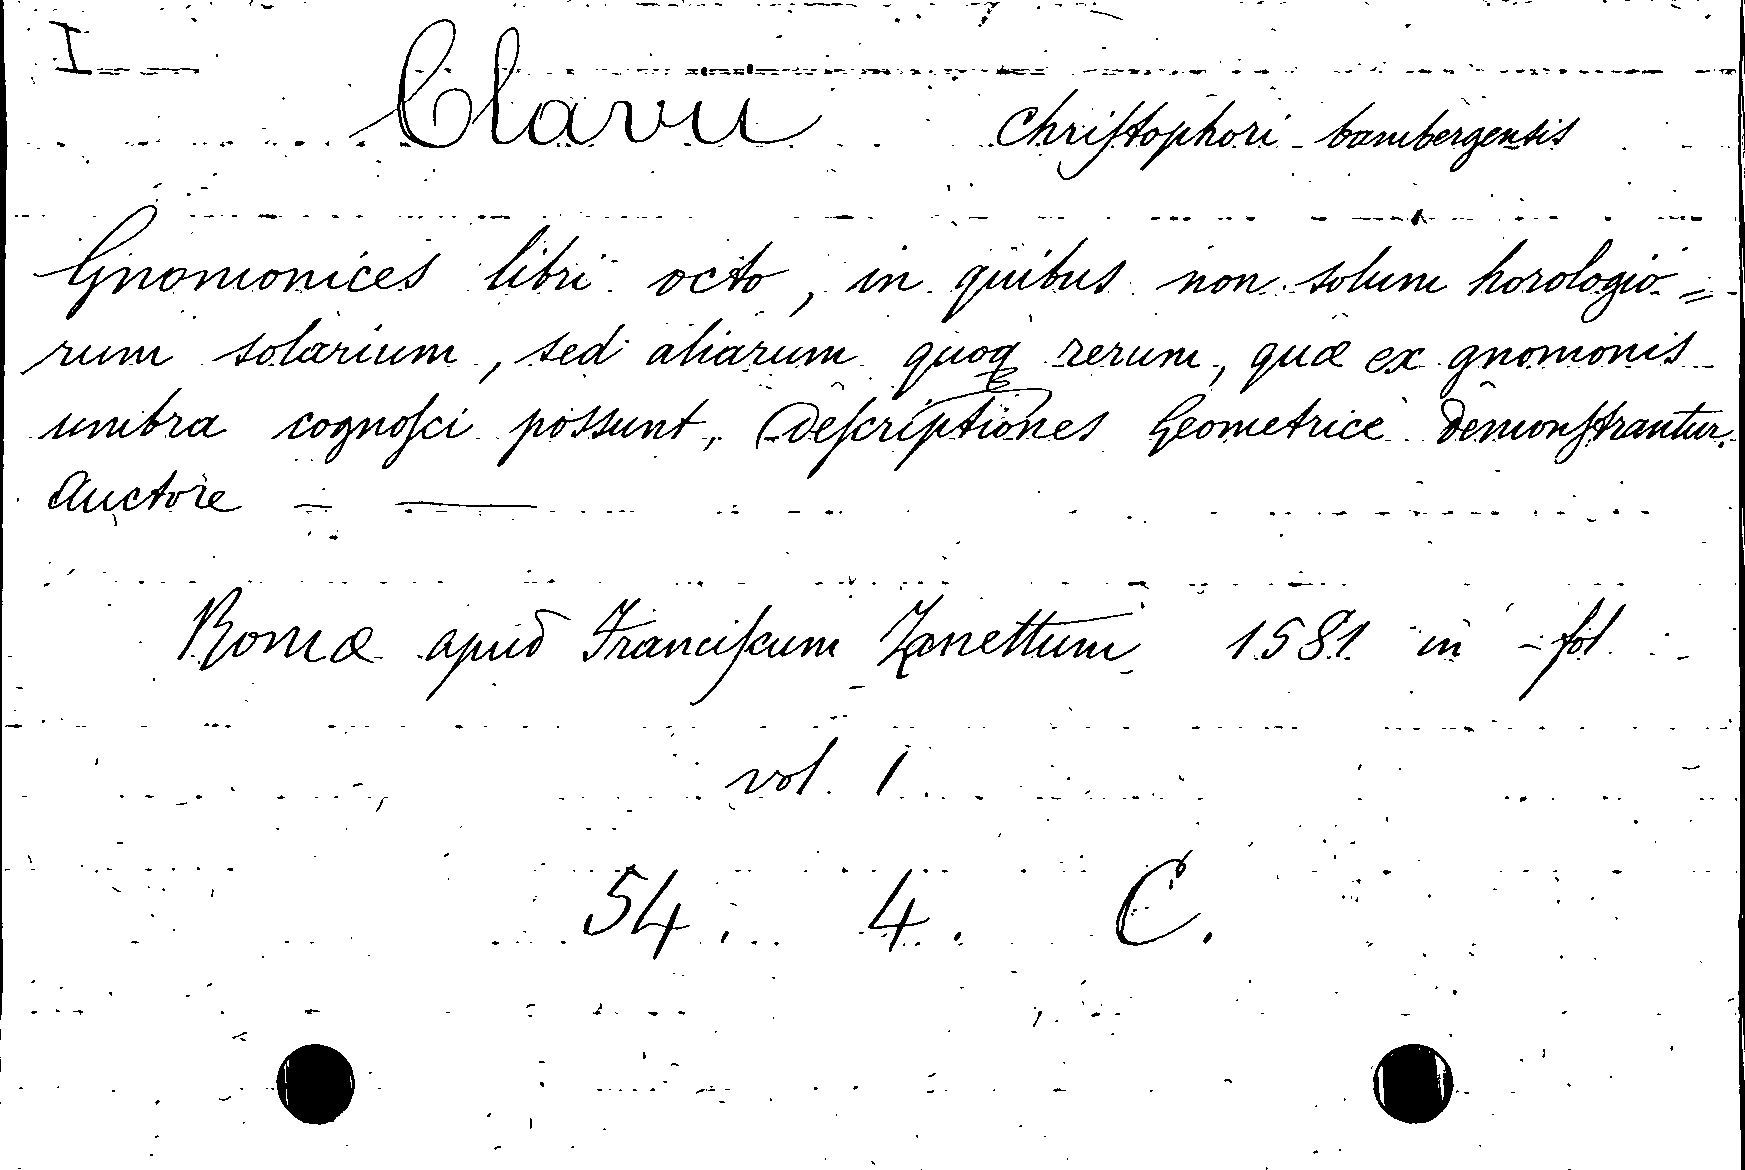 I
Clavii Chriſtophori bambergensis
Gnomonices libri octo, in quibus non solum horologio=
rum solarium, sed aliarum quoq rerum, quæ ex gnomonis
umbra cognoſci possunt, Deſcriptiones Geometrice demonſtrantur.
Auctore - —
Romæ apud Franciſcum Zanettum 1581 in - fol
vol. 1
54. 4. C.